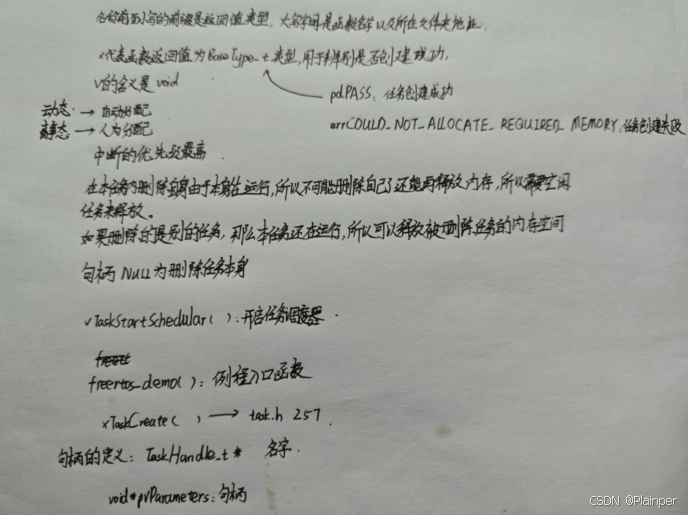 名称前面小写的前缀是返回值类型，大写字母是函数名字以及所在文件夹地址.
x代表函数返回值为BaseType_t类型,用于辨别是否创建成功.
v的含义是void
pdPASS：任务创建成功
动态 → 自动分配
静态 → 人为分配
errCOULD_NOT_ALLOCATE_REQUIRED_MEMORY:任务创建失败
中断的优先级最高
在本任务为删除自身由于本身在运行,所以不可能删除自己了还能再释放内存,所以需要空闲
任务来释放。
如果删除的是别的任务，那么本任务还在运行,所以可以释放被删除任务的内存空间
句柄 NULL为删除任务本身
vTaskStartSchedular( ):开启任务调度器.
freertos_demo( ):例程入口函数
xTaskCreate( ) → task.h 257.
句柄的定义：TaskHandle_t * 名字.
void*pvParameters:句柄
CSDN @Plainper